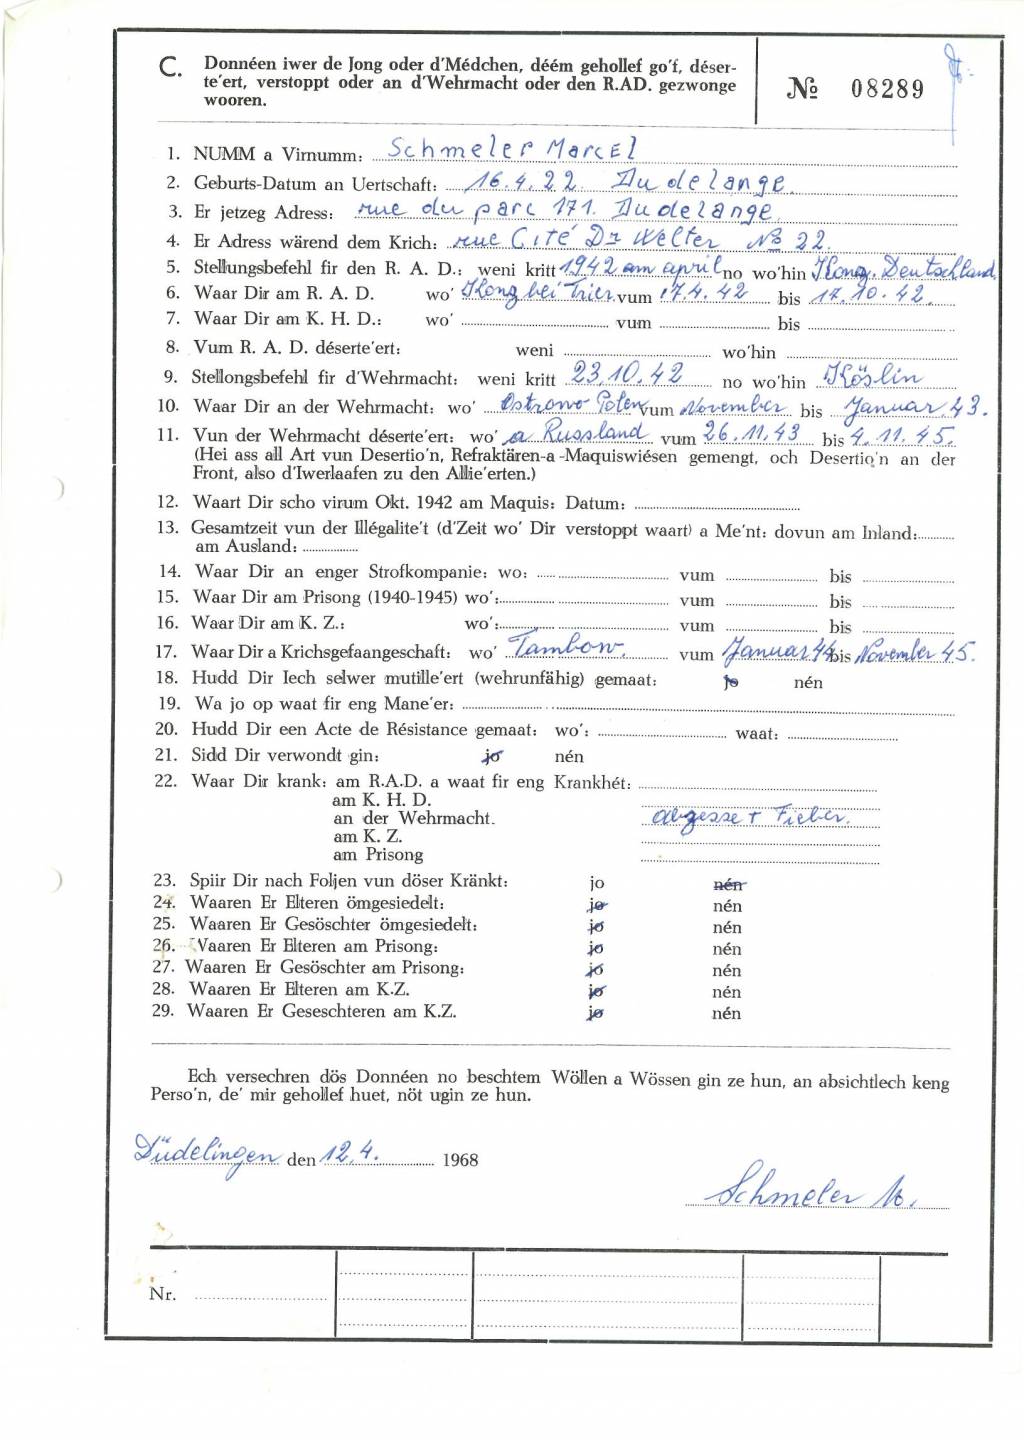 C. Donnéen iwer de Jong oder d'Médchen, déém gehollef go'f, déser-
te'ert, verstoppt oder an d'Wehrmacht oder den R.AD. gezwonge
wooren.
№ 08289
1. NUMM a Virnumm: Schmeler Marcel
2. Geburts-Datum an Uertschaft: 16.4.22. Dudelange.
3. Er jetzeg Adress: rue du parc 171. Dudelange.
4. Er Adress wärend dem Krich: rue Cité Dr Welter No 22.
5. Stellungsbefehl fir den R. A. D.: weni kritt 1942 am april no wo'hin Konz. Deutschland
6. Waar Dir am R. A. D. wo' Konz bei Trier vum 17.4.42 bis 17.10.42.
7. Waar Dir am K. H. D.: wo' vum bis
8. Vum R. A. D. déserte'ert: weni wo'hin
9. Stellongsbefehl fir d'Wehrmacht: weni kritt 23.10.42 no wo'hin Köslin
10. Waar Dir an der Wehrmacht: wo' Ostrowo Polen vum November bis Januar.43.
11. Vun der Wehrmacht déserte'ert: wo' a Russland vum 26.11.43 bis 4.11.45.
(Hei ass all Art vun Desertio'n, Refraktären-a-Maquiswiésen gemengt, och Desertio'n an der
Front, also d'Iwerlaafen zu den Allie'erten.)
12. Waart Dir scho virum Okt. 1942 am Maquis: Datum:
13. Gesamtzeit vun der Illégalite't (d'Zeit wo' Dir verstoppt waart) a Me'nt: dovun am Inland:
am Ausland:
14. Waar Dir an enger Strofkompanie: wo: vum bis
15. Waar Dir am Prisong (1940-1945) wo': vum bis
16. Waar Dir am K. Z.: wo': vum bis
17. Waar Dir a Krichsgefaangeschaft: wo' Tambow. vum Januar 44 bis November 45.
18. Hudd Dir Iech selwer mutille'ert (wehrunfähig) gemaat: jo nén
19. Wa jo op waat fir eng Mane'er:
20. Hudd Dir een Acte de Résistance gemaat: wo': waat:
21. Sidd Dir verwondt gin: jo nén
22. Waar Dir krank: am R.A.D. a waat fir eng Krankhét:
am K. H. D.
an der Wehrmacht. abzesse + Fieber.
am K. Z.
am Prisong
23. Spiir Dir nach Foljen vun döser Kränkt: jo nén
24. Waaren Er Elteren ömgesiedelt: jo nén
25. Waaren Er Gesöschter ömgesiedelt: jo nén
26. Waaren Er Elteren am Prisong: jo nén
27. Waaren Er Gesöschter am Prisong: jo nén
28. Waaren Er Elteren am K.Z. jo nén
29. Waaren Er Geseschteren am K.Z. jo nén
Ech versechren dös Donnéen no beschtem Wöllen a Wössen gin ze hun, an absichtlech keng
Perso'n, de' mir gehollef huet, nöt ugin ze hun.
Düdelingen den 12.4. 1968
Schmeler M.
Nr.